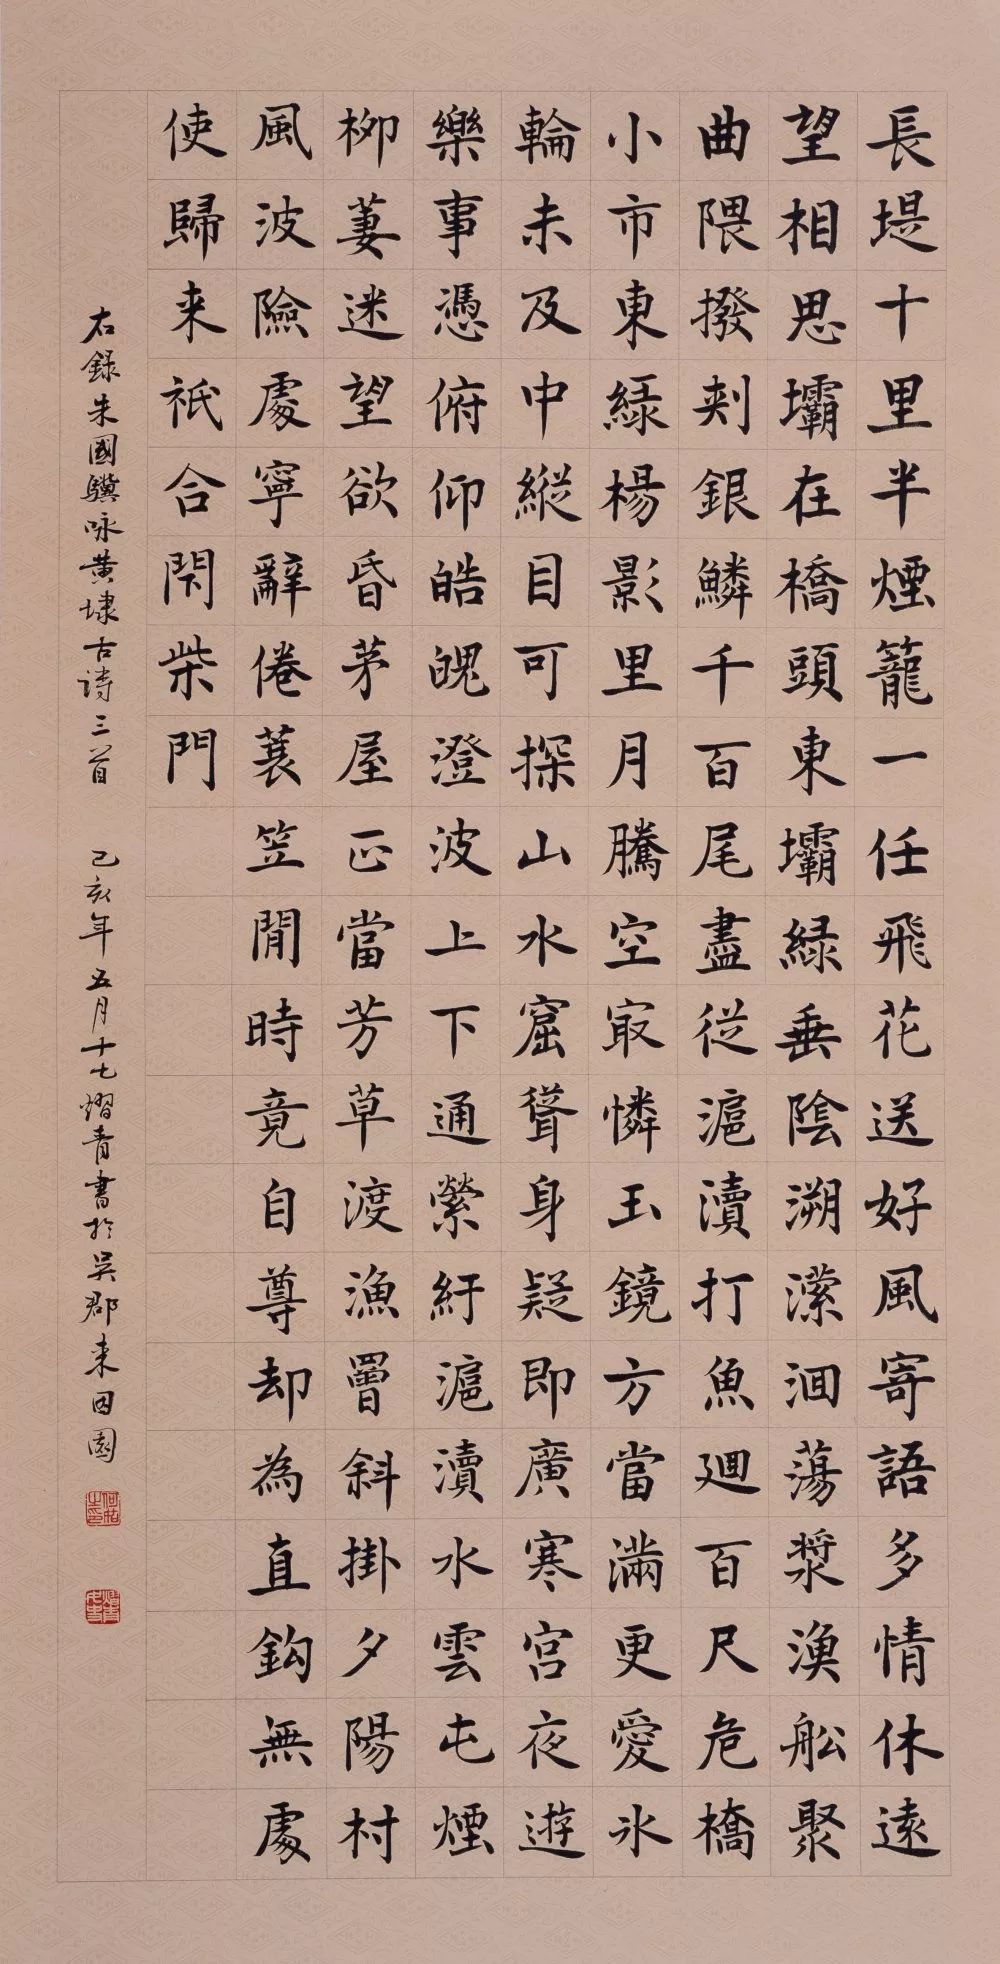 長堤十里半煙籠一任飛花送好風寄語多情休遠
望相思壩在橋頭東壩綠垂陰溯濴洄蕩漿漁舩聚
曲隈撥剌銀鱗千百尾盡從滬瀆打魚廻百尺危橋
小市東綠楊影里月騰空冣憐玉鏡方當滿更愛氷
輪未及中縱目可探山水窟聳身疑即廣寒宮夜遊
樂事憑俯仰皓魄澄波上下通縈紆滬瀆水雲屯煙
柳萋迷望欲昏茅屋正當芳草渡漁罾斜掛夕陽村
風波險處寧辭倦蓑笠閒時竟自尊却為直鈎無處
使歸来祇合閇柴門
右錄朱國驥咏黄埭古诗三首 己亥年五月十七熠青書於吳郡来田園